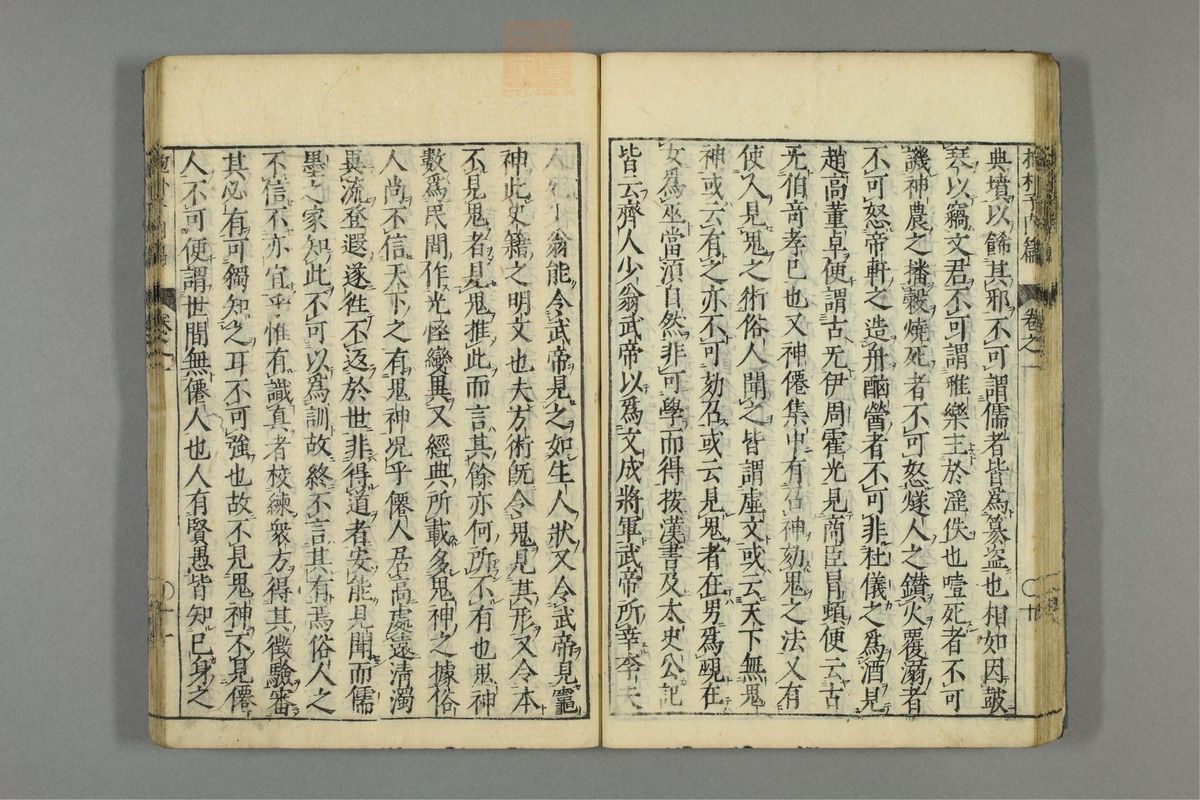 抱朴子内篇 卷之一 〇廿
典墳以餙其邪不可謂儒者皆爲篡盗也相如因鼓
琴以竊文君不可謂雅樂主於滛佚也噎死者不可
譏神農之播穀燒死者不可怒燧人之鑚火覆溺者
不可怒帝軒之造舟酗醟者不可非杜儀之爲酒見
趙高董卓便謂古无伊周霍光見商臣冒頓便云古
无伯竒孝已也又神僊集中有召神劾鬼之法又有
使人見鬼之術俗人聞之皆謂虛文或云天下無鬼
神或云有之亦不可劾召或云見鬼者在男爲覡在
女爲巫當湏自然非可學而得按漢書及太史公記
皆云齊人少翁武帝以爲文成將軍武帝所幸李夫
人死少翁能令武帝見之如生人狀又令武帝見竈
神此史籍之明文也夫方術旣令鬼見其形又令本
不見鬼者見鬼推此而言其餘亦何所不有也鬼神
數爲民間作光恠變異又經典所載多鬼神之據俗
人尚不信天下之有鬼神况乎僊人居高處遠清濁
異流登遐遂徃不返於世非得道者安能見聞而儒
墨之家知此不可以爲訓故終不言其有焉俗人之
不信不亦宜乎惟有識真者校練衆方得其徵驗審
其必有可獨知之耳不可強也故不見鬼神不見僊
人不可便謂世間無僊人也人有賢愚皆知已身之
卷之一